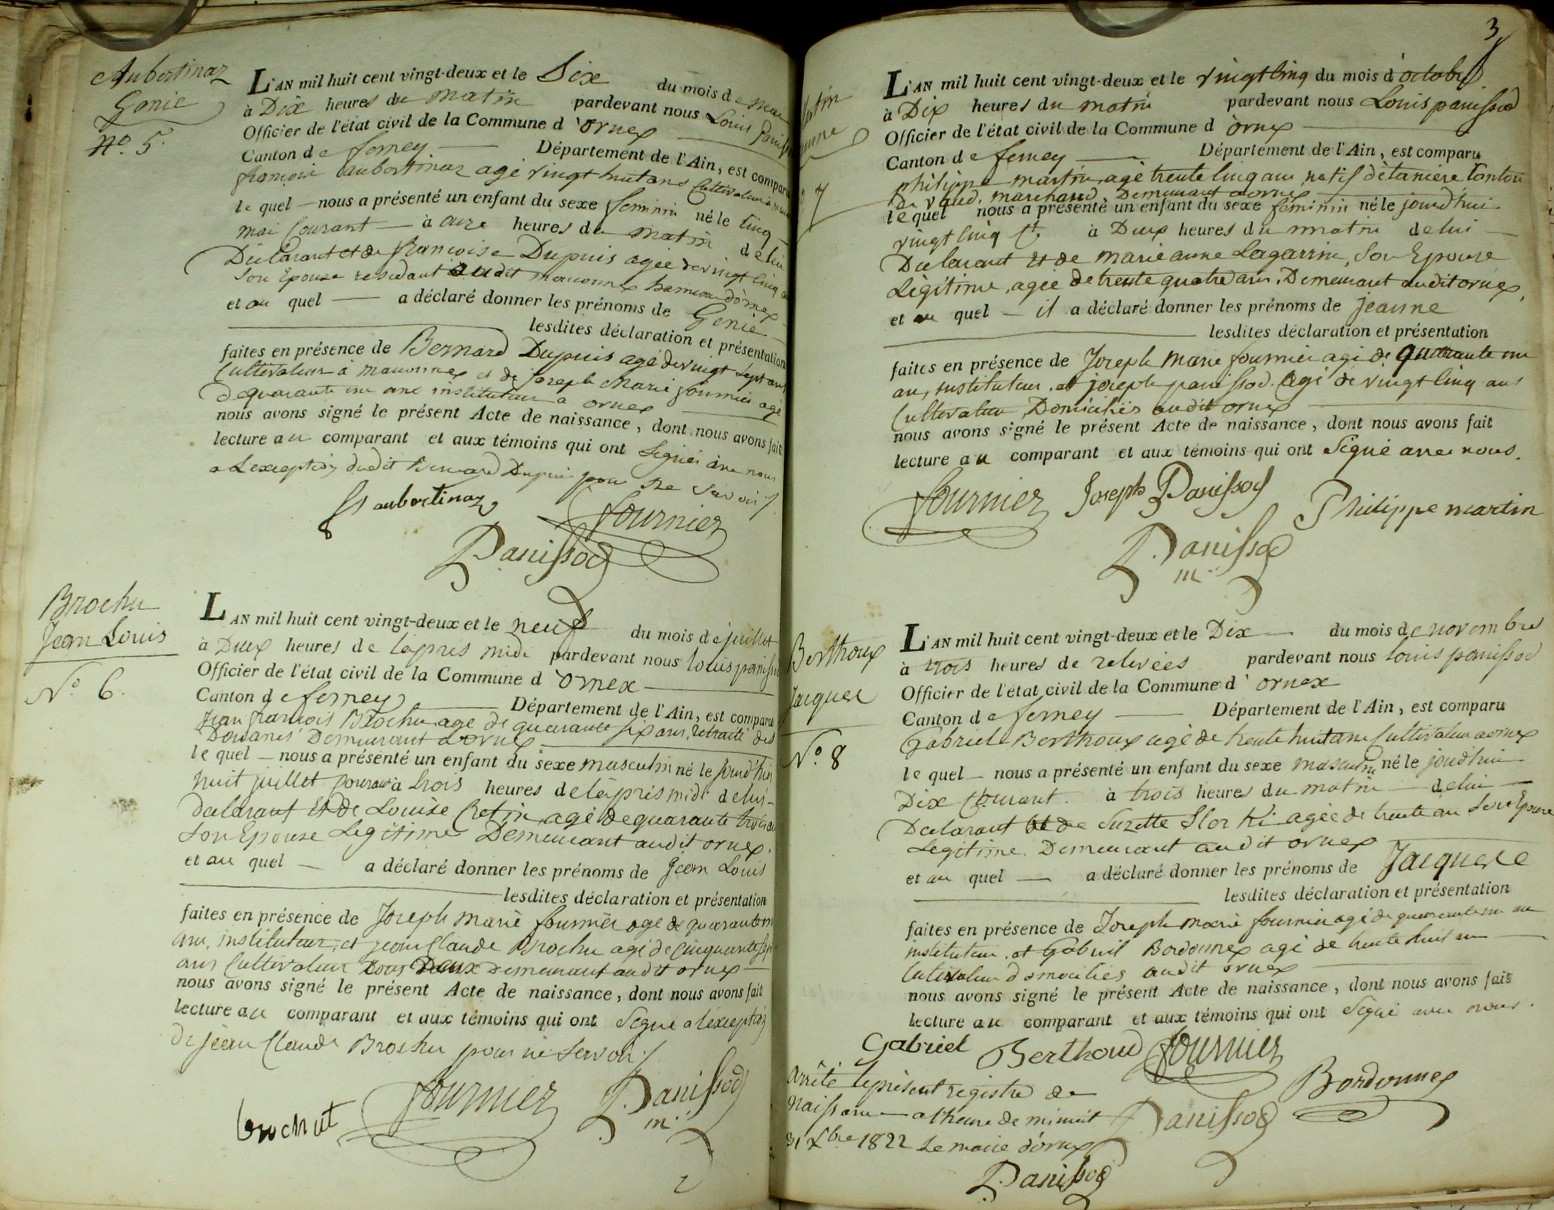 Aubertinaz
Genie
No. 5.
L'AN mil huit cent vingt-deux et le Six du mois de mai
à Dix heures du matin pardevant nous Louis Paniss
Officier de l'état civil de la Commune d'ornex
Canton de ferney Département de l'Ain, est comparu
françois aubertinaz agé vingt huit ans Cultivateur a
le quel nous a présenté un enfant du sexe feminin né le Cinq
mai Courant à onze heures du matin de lui
Declarant et de françoise Dupuis agée de vingt Cinq
Son Epouse residant audit maconnex hameau d'ornex
et au quel a déclaré donner les prénoms de Genie
lesdites déclaration et présentation
faites en présence de Bernard Dupuis agé de vingt sept ans
Cultivateur à maconnex et de Joseph Marie fournier agé
de quarante un ans instituteur à ornex
nous avons signé le présent Acte de naissance, dont nous avons fait
lecture au comparant et aux témoins qui ont Signé avec nous
a Lexception dudit Bernard Dupuis pour ne Savoir
aubertinaz
fournier
Panissod
Brochu
Jean Louis
No 6.
L'AN mil huit cent vingt-deux et le neuf du mois de juillet
à Deux heures de lapres midi pardevant nous louis paniss
Officier de l'état civil de la Commune d'ornex
Canton de ferney Département de l'Ain, est comparu
Jean françois Brochu age de quarante six ans, retraité des
Douanes Demeurant a ornex
le quel nous a présenté un enfant du sexe masculin né le jourdhui
huit juillet à trois heures de laprès midi de lui
declarant Et de Louise Cretin agé de quarante trois
Son Epouse Legitime Demeurant audit ornex.
et au quel a déclaré donner les prénoms de Jean Louis
lesdites déclaration et présentation
faites en présence de Joseph marie fournier age de quarante un
ans, instituteur, et jean Claude Brochu agé de Cinquante sept
ans Cultivateur tous Deux demeurant audit ornex
nous avons signé le présent Acte de naissance, dont nous avons fait
lecture au comparant et aux témoins qui ont Signé a lexception
de jean Claude Brochu pour ne Savoir
brochut
fournier
Panissod
m.
2
3
7
L'AN mil huit cent vingt-deux et le vingt Cinq du mois d'octobre
à Dix heures du matin pardevant nous Louis panissod
Officier de l'état civil de la Commune d'ornex
Canton de ferney Département de l'Ain, est comparu
philippe martin agé trente Cinq ans natif détaniere Canton
de Vaud, marchand, Demeurant a ornex
le quel nous a présenté un enfant du sexe féminin né le jourd'hui
vingt Cinq Ct. à Deux heures du matin de lui
Declarant Et de marie anne Lagarrin, Son Epouse
Légitime, agée de trente quatre ans, Demeurant audit ornex,
et au quel il a déclaré donner les prénoms de jeanne
lesdites déclaration et présentation
faites en présence de Joseph marie fournier agé de quarante un
an, instituteur, et joseph panissod. agé de vingt Cinq ans
Cultivateur Domiciliés audit ornex
nous avons signé le présent Acte de naissance, dont nous avons fait
lecture au comparant et aux témoins qui ont Signé avec nous.
fournier
Joseph Panissod
Philippe martin
Panissod
m.
Berthoux
Jacques
No. 8
L'AN mil huit cent vingt-deux et le Dix du mois de novembre
à trois heures de relevées pardevant nous louis panissod
Officier de l'état civil de la Commune d'ornex
Canton de ferney Département de l'Ain, est comparu
Gabriel Berthoux agé de trente huit ans Cultivateur a ornex
le quel nous a présenté un enfant du sexe masculin né le jourdhui
Dix Courant. à trois heures du matin de lui
Declarant Et de Suzette agée de trente an Son Epouse
Legitime. Demeurant audit ornex
et au quel a déclaré donner les prénoms de Jacques
lesdites déclaration et présentation
faites en présence de Joseph marie fournier agé de quarante un an
instituteur. et Gabriel Bordonnex agé de trente huit an
Cultivateur domiciliés audit ornex
nous avons signé le présent Acte de naissance, dont nous avons fait
lecture au comparant et aux témoins qui ont Signé avec nous.
Gabriel Berthoud fournier
Bordonnex
Panissod
arrêté le présent registre de
Naissance a lheure de minuit
31 Xbre 1822 Le maire d'ornex
Panissod